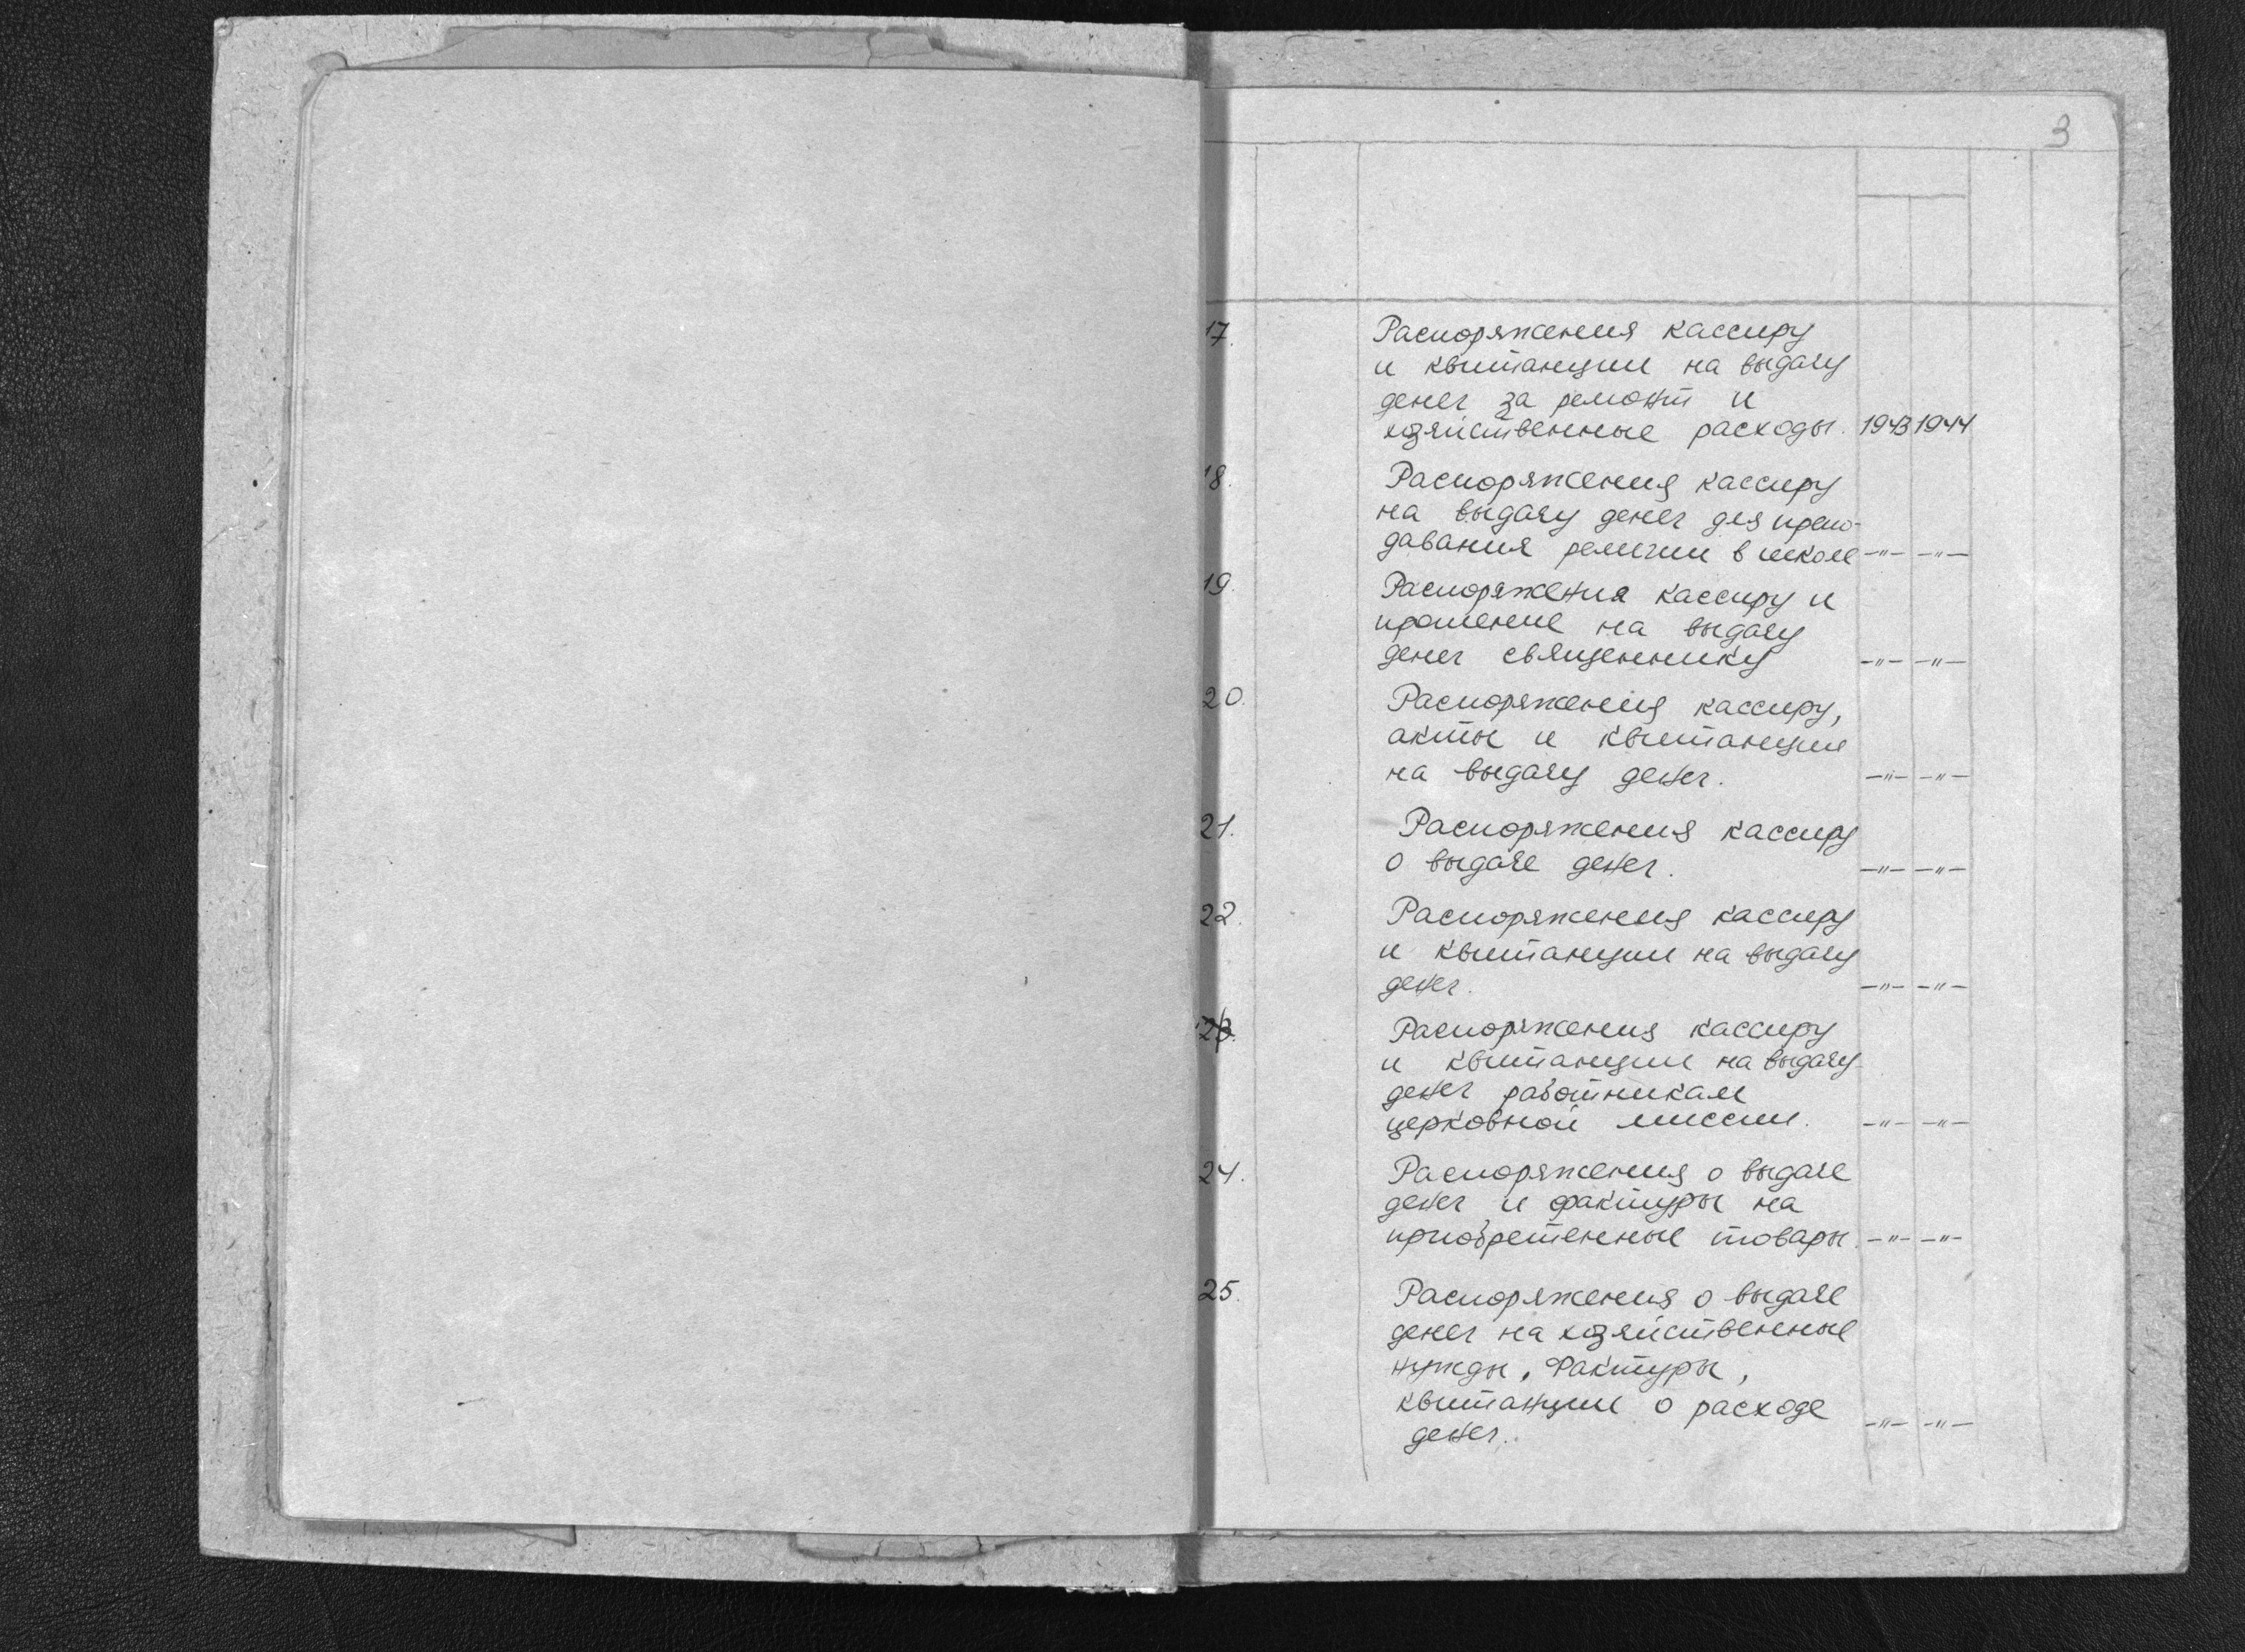 3
17. Распоряжения кассиру
и квитанции на выдачу
денег за ремонт и
хозяйственные расходы. 1943 1944
18. Распоряжения кассиру
на выдачу денег для препо-
давания религии в школе -"- -"-
19. Распоряжения кассиру и
прошение на выдачу
денег священнику -"- -"-
20. Распоряжения кассиру,
акты и квитанции
на выдачу денег. -"- -"-
21. Распоряжения кассиру
о выдаче денег. -"- -"-
22. Распоряжения кассиру
и квитанции на выдачу
денег. -"- -"-
23. Распоряжения кассиру
и квитанции на выдачу
денег работникам
церковной миссии. -"- -"-
24. Распоряжения о выдаче
денег и фактуры на
приобретенные товары. -"- -"-
25. Распоряжения о выдаче
денег на хозяйственные
нужды, фактуры,
квитанции о расходе
денег. -"- -"-